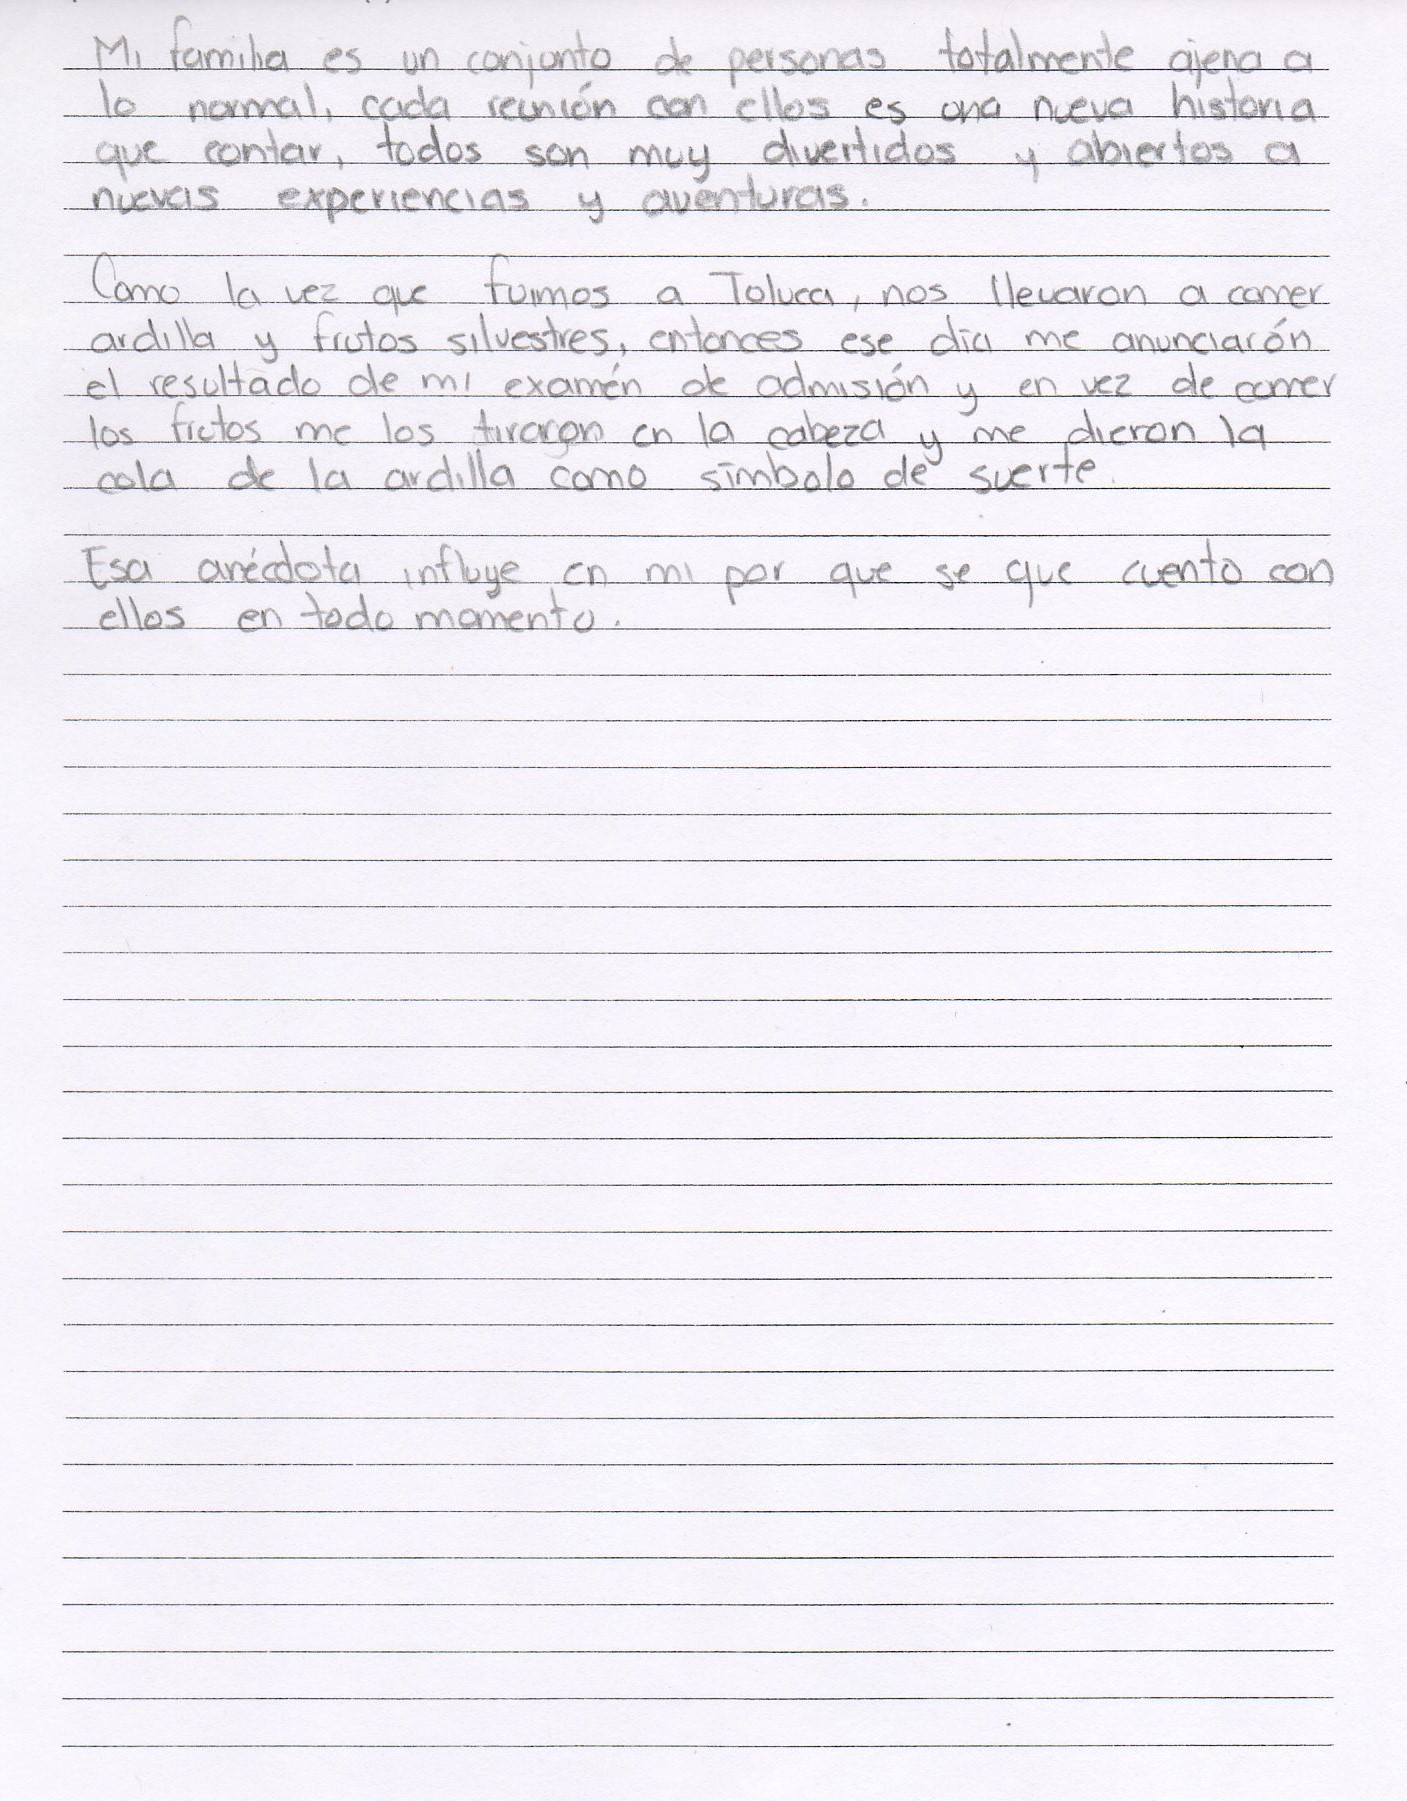 Mi familia es un conjunto de personas totalmente ajena a
lo normal, cada reunión con ellos es una nueva historia
que contar, todos son muy divertidos y abiertos a
nuevas experiencias y aventuras.
Como la vez que fuimos a Toluca, nos llevaron a comer
ardilla y frutos silvestres, entonces ese día me anunciarón
el resultado de mi examén de admisión y en vez de comer
los frutos me los tiraron en la cabeza y me dieron la
cola de la ardilla como símbolo de suerte.
Esa anécdota influye en mi por que se que cuento con
ellos en todo momento.